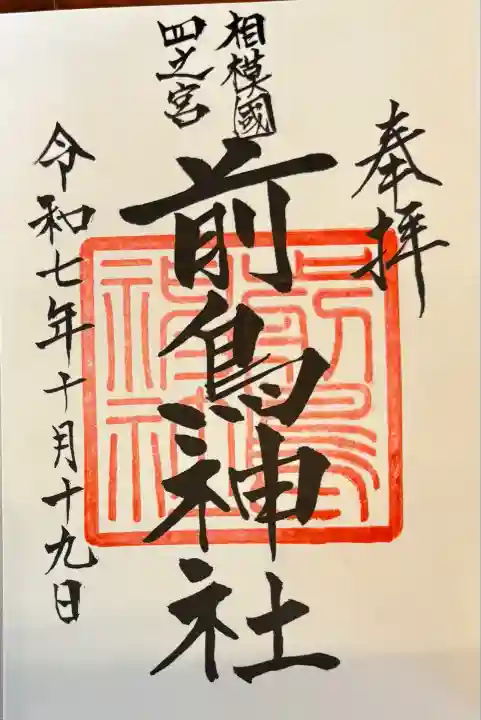 奉拝
相模國
四之宮
前鳥神社
令和七年十月十九日
前鳥
神社